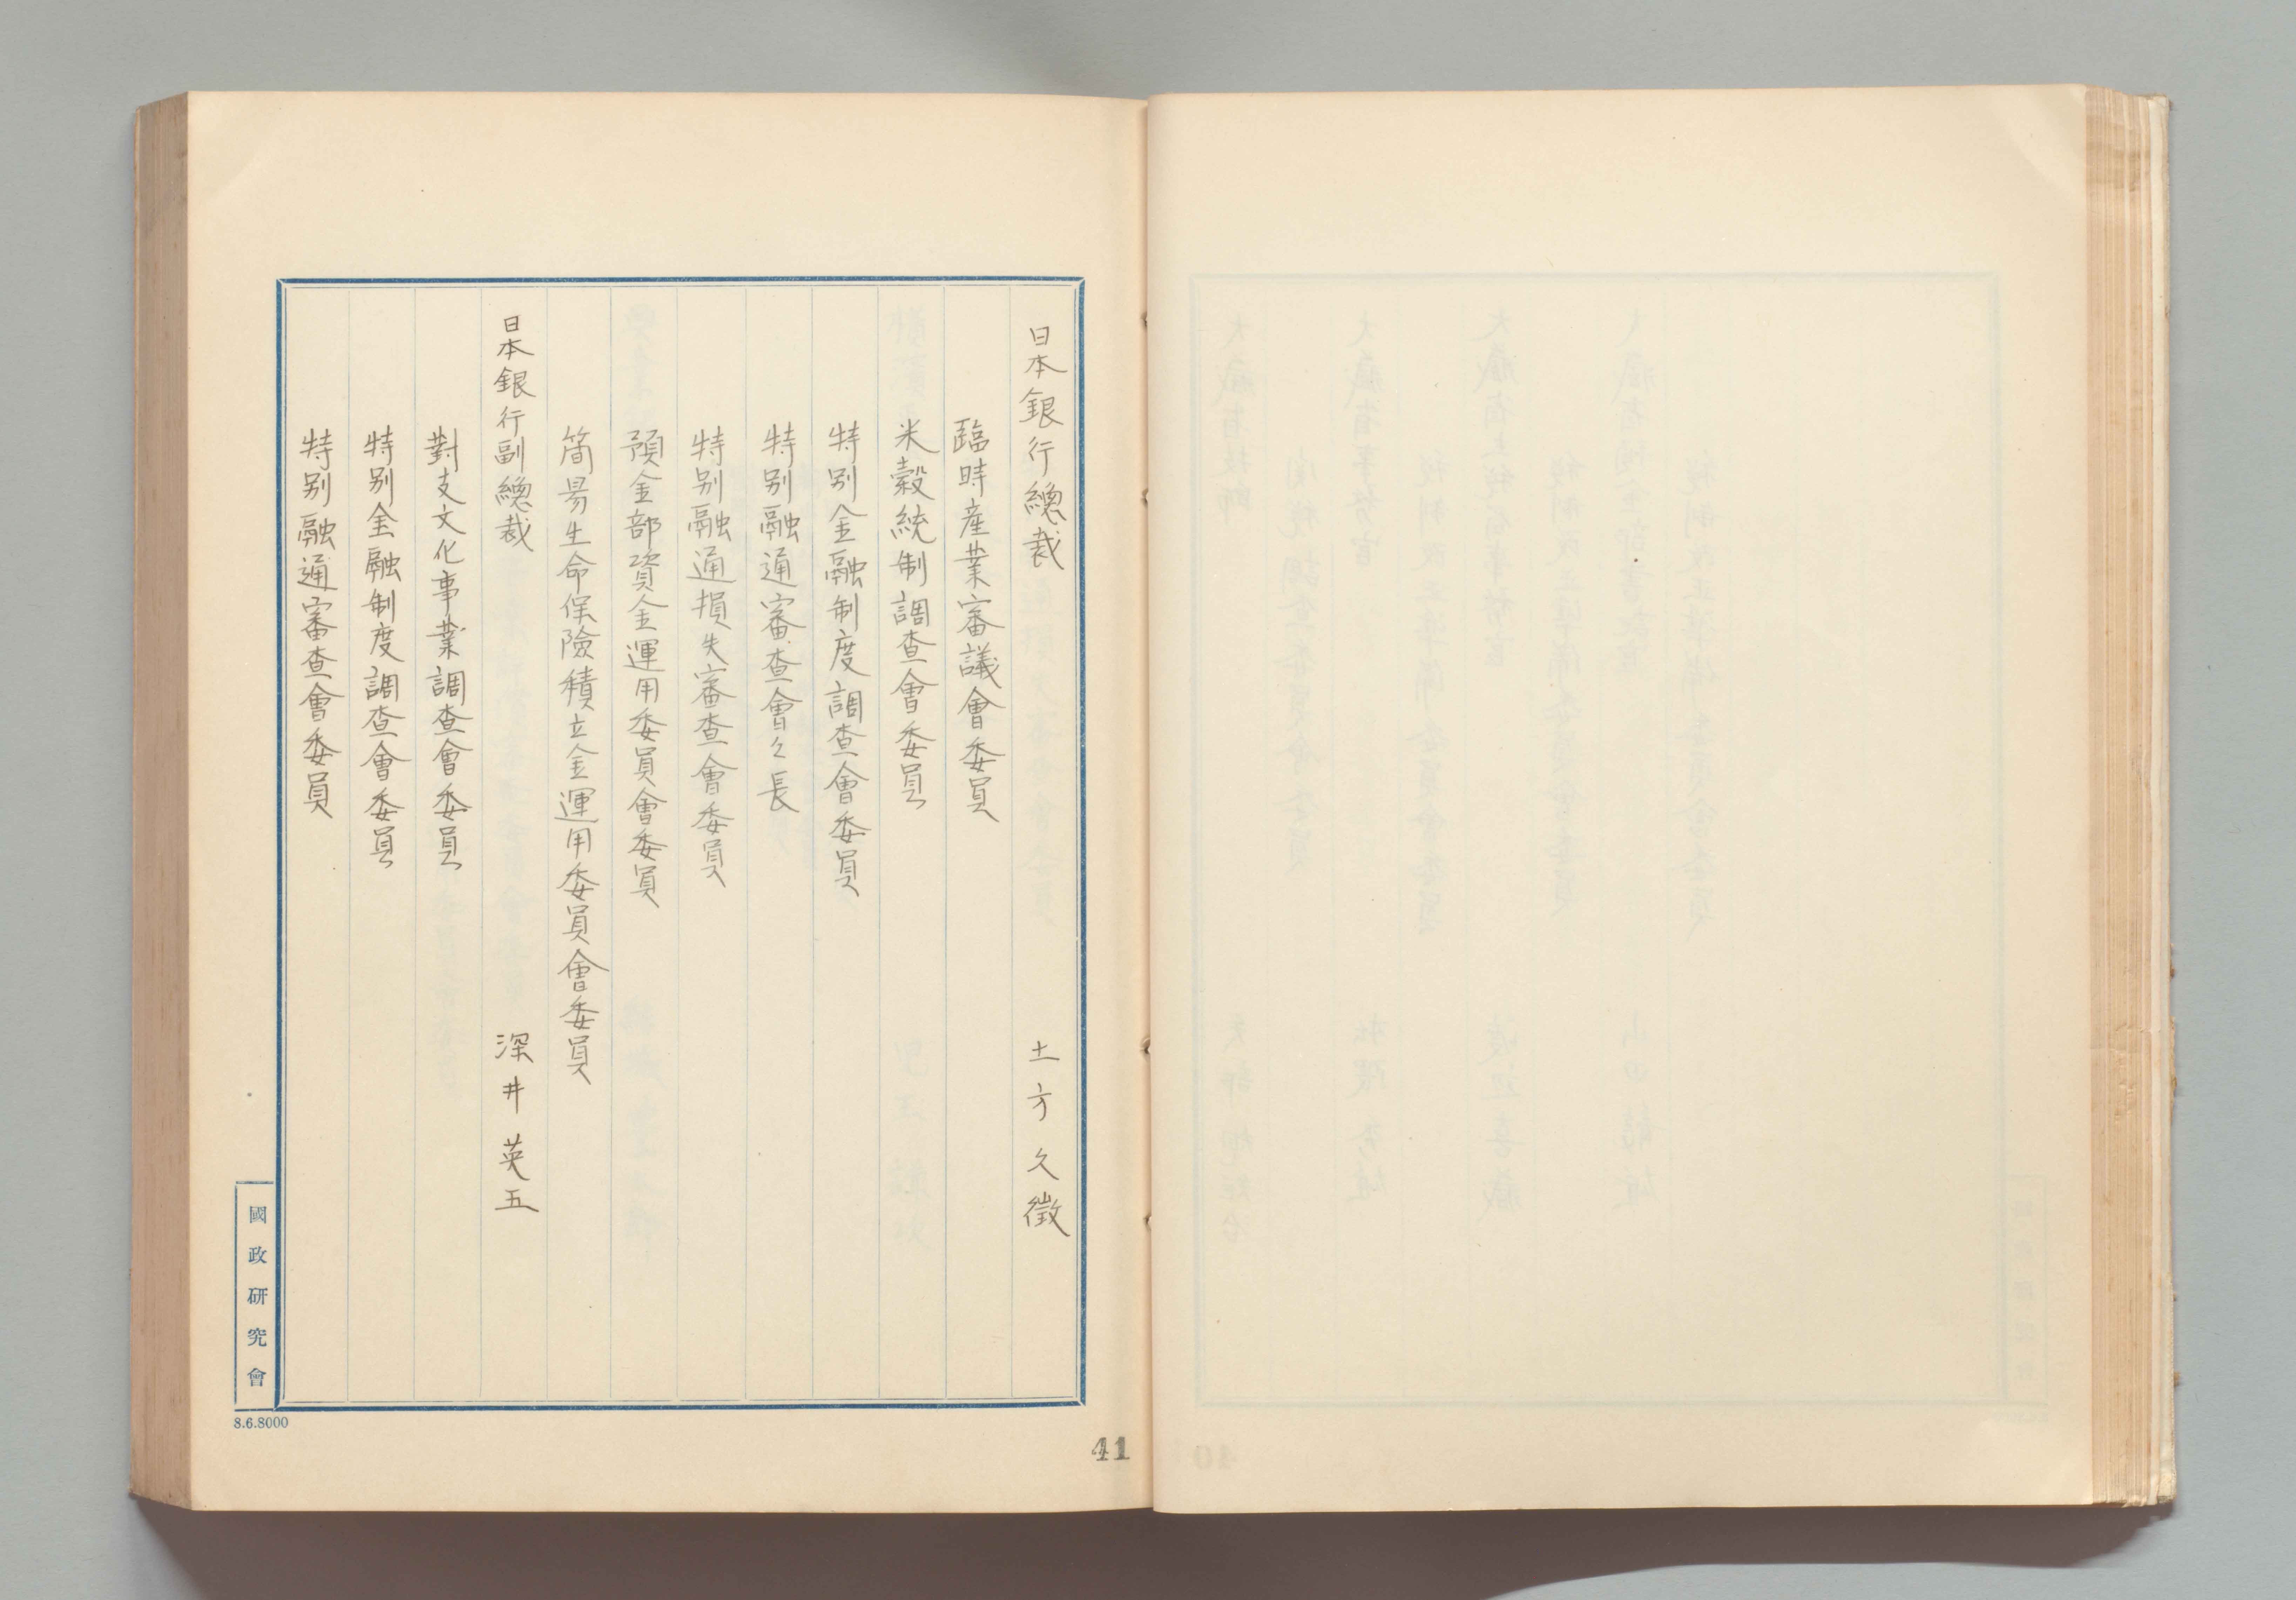 日本銀行總裁　土方久徴
臨時産業審議會委員
米穀統制調査會委員
特別金融制度調査會委員
特別融通審査會々長
特別融通損失審査會委員
預金部資金運用委員會委員
簡易生命保險積立金運用委員會委員
日本銀行副總裁　深井英五
對支文化事業調査會委員
特別金融制度調査會委員
特別融通審査會委員
國政研究會
8.6.8000
41